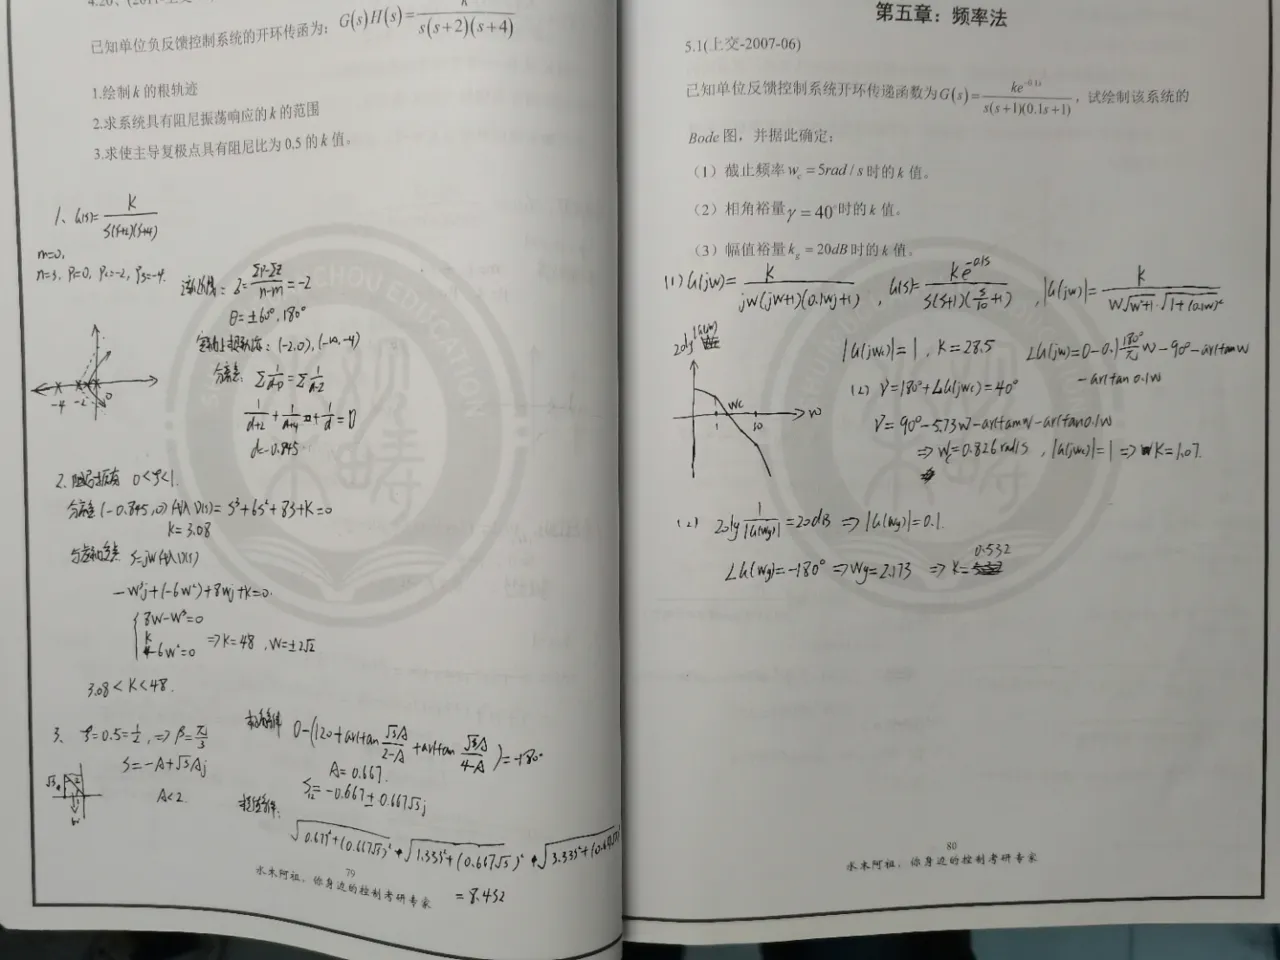 已知单位负反馈控制系统的开环传函为: G(s)H(s)=k/s(s+2)(s+4)
1.绘制k的根轨迹
2.求系统具有阻尼振荡响应的k的范围
3.求使主导复极点具有阻尼比为0.5的k值。
1、G(s)=K/S(S+2)(S+4)
m=0,
n=3, P1=0, P2=-2, P3=-4.
∑P-∑Z/n-m=-2
θ=±60°,180°
(-2,0),(-∞,-4)
分离点 ∑1/d-p=∑1/d-z
1/d+2+1/d+4+1/d=0
d=-0.845
-4 -2 0
2. 0<ζ<1.
(-0.845,0)代入D(s)=S³+6S²+8S+K=0
K=3.08
S=jw代入D(s)
-w³j+(-6w²)+8wj+K=0.
8w-w³=0
K-6w²=0 =>K=48, W=±2√2
3.08<K<48.
3、ζ=0.5=1/2,=>β=π/3
S=-A+√3Aj
A<2.
0-(120+arctan√3A/2-A+arctan√3A/4-A)=-180°
A=0.667.
S12=-0.667±0.667√3j
=8.452
79
水木阿祖,你身边的控制考研专家
第五章:频率法
5.1(上交-2007-06)
已知单位反馈控制系统开环传递函数为G(s)=ke^-0.1s/s(s+1)(0.1s+1),试绘制该系统的
Bode图,并据此确定:
(1)截止频率wc=5rad/s时的k值。
(2)相角裕量γ=40°时的k值。
(3)幅值裕量kg=20dB时的k值。
(1)G(jw)=K/jw(jw+1)(0.1wj+1), G(s)=Ke^-0.1S/S(S+1)(S/10+1), |G(jw)|=K/W√w²+1·√1+(0.1w)²
|G(jwc)|=1, K=28.5 ∠G(jw)=0-0.1 180°/π w-90°-arctanw
-arctan0.1w
wc 1 10 w
(2) γ=180°+∠G(jwc)=40°
γ=90°-5.73w-arctanw-arctan0.1w
=>Wc=0.826rad/s, |G(jwc)|=1=>K=1.07.
20lg1/|G(wg)|=20dB=>|G(wg)|=0.1.
∠G(wg)=-180°=>Wg=2.173 =>K=0.532
80
水木阿祖,你身边的控制考研专家